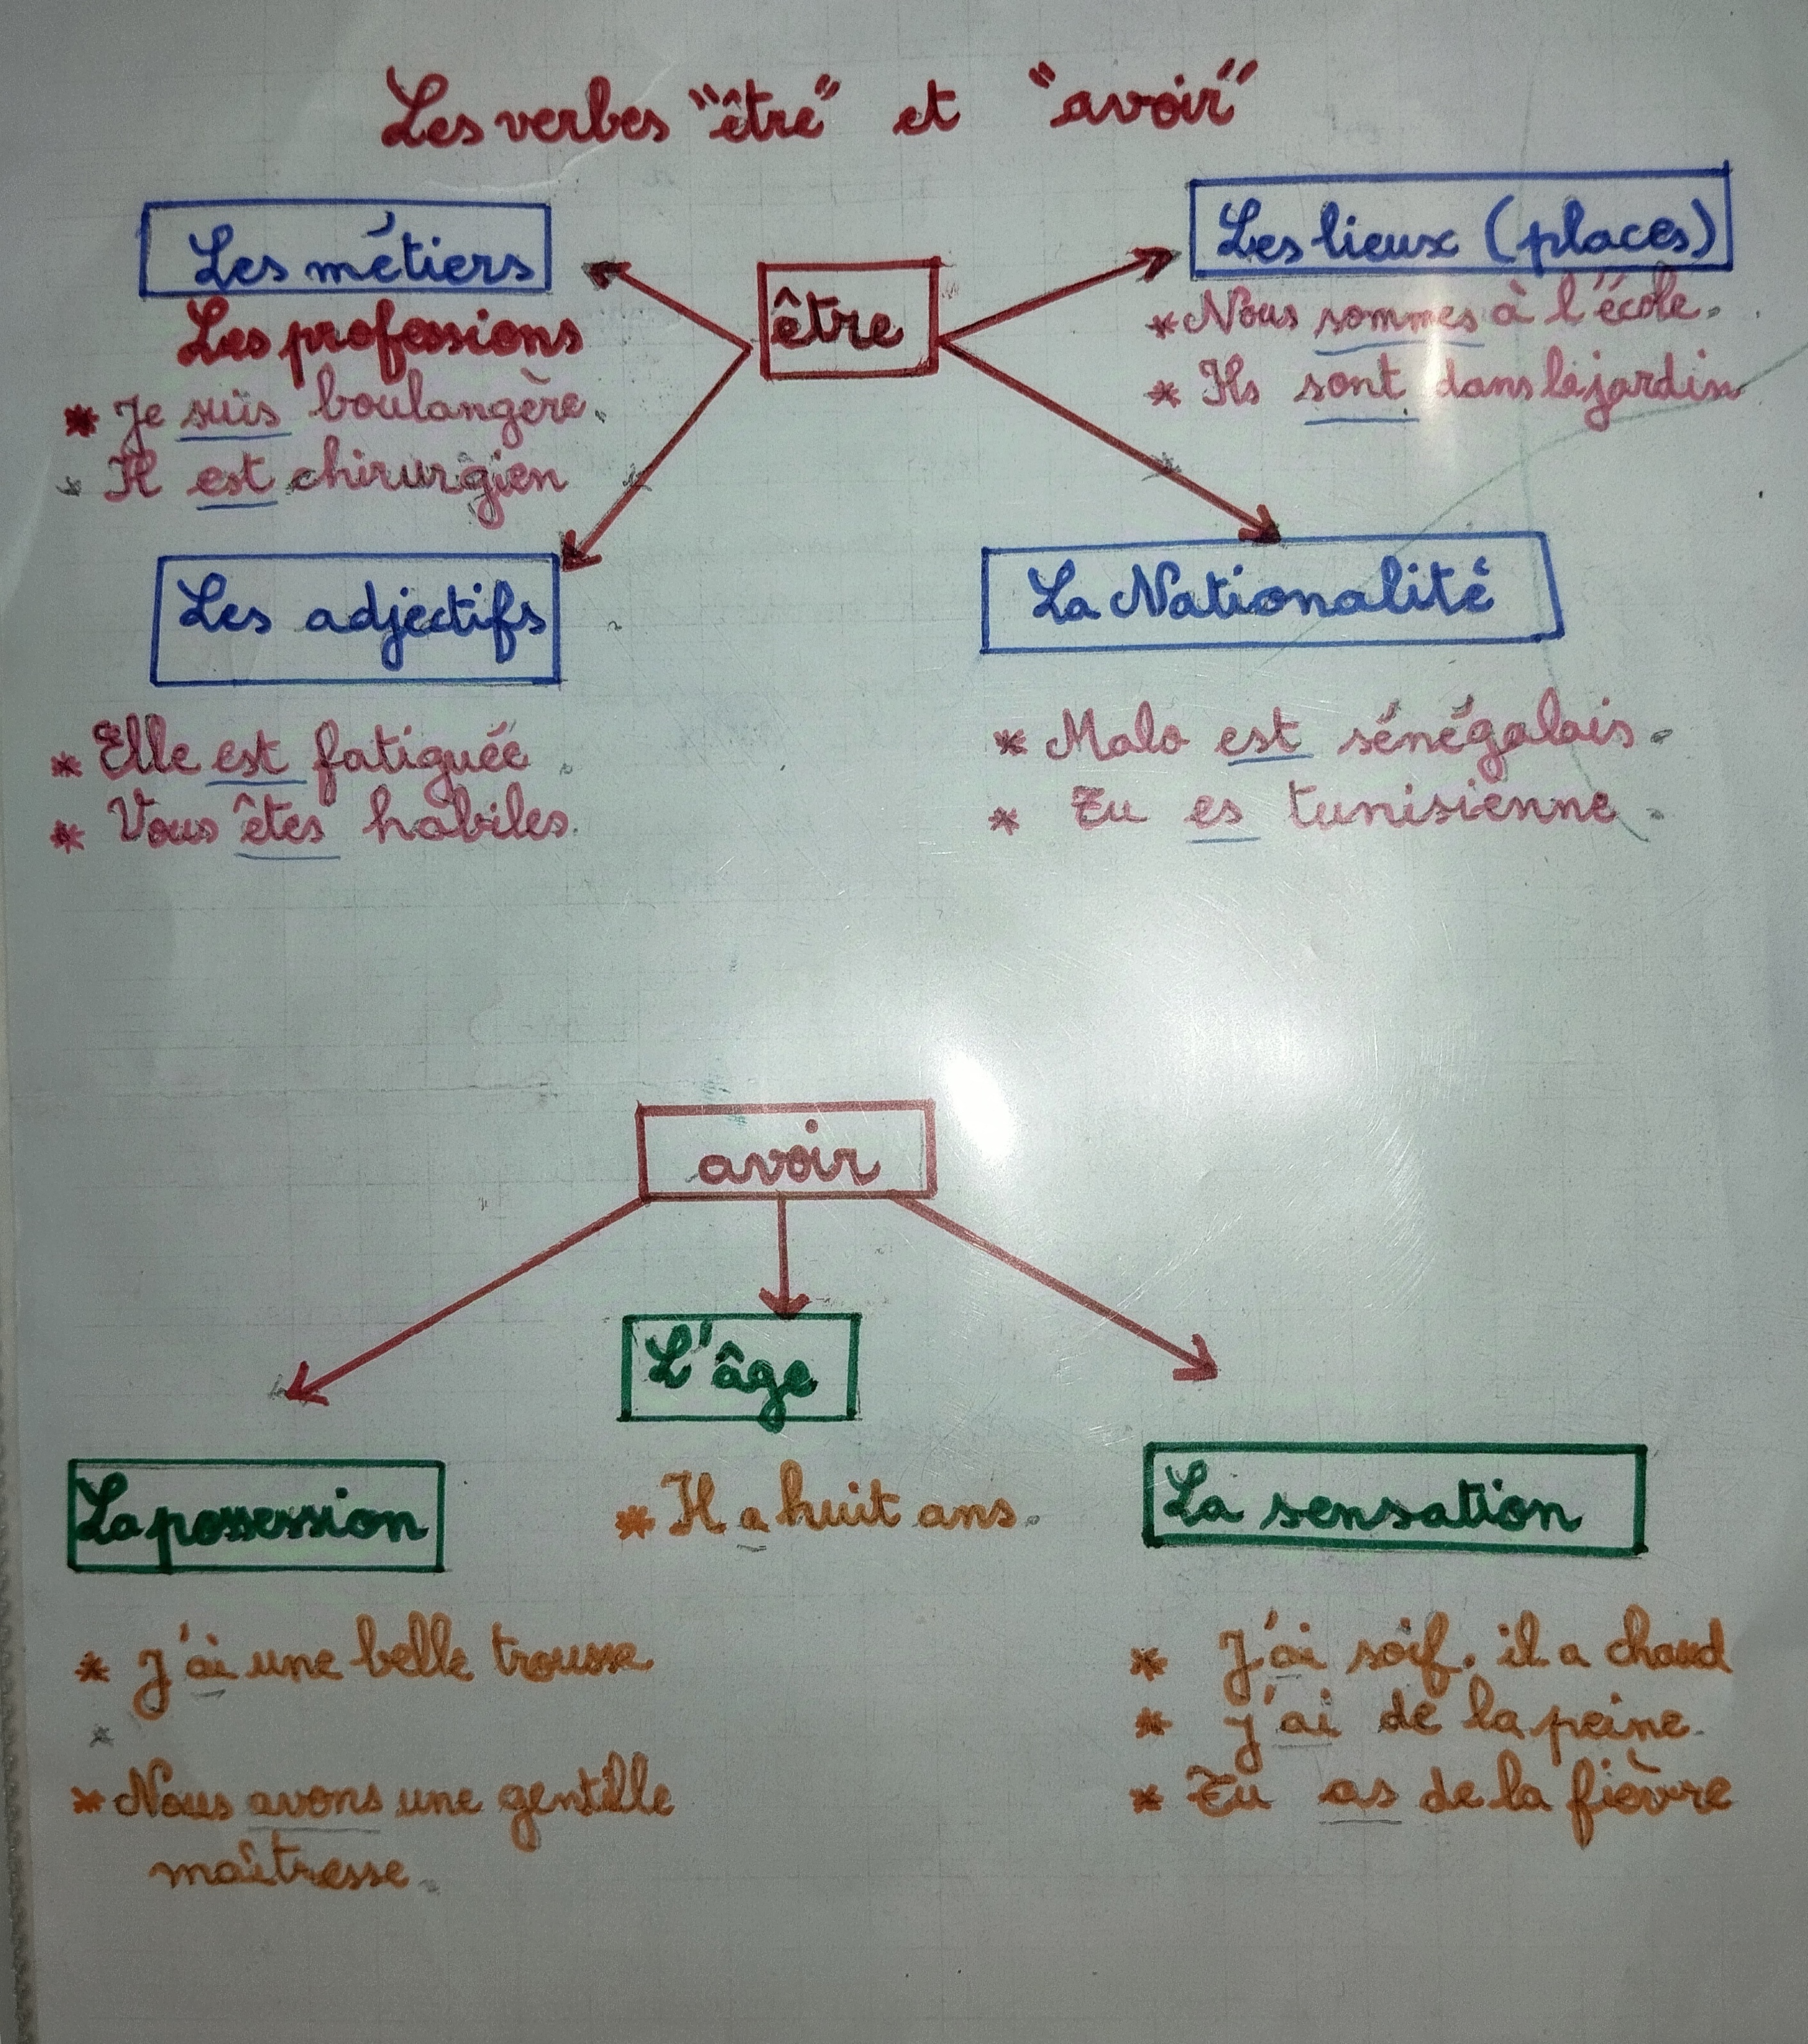 Les verbes "être" et "avoir"
Les métiers
Les professions
* Je suis boulangère.
* Il est chirurgien
être
Les lieux (places)
* Nous sommes à l'école.
* Ils sont dans le jardin
Les adjectifs
* Elle est fatiguée.
* Vous êtes habiles.
La Nationalité
* Malo est sénégalais.
* Tu es tunisienne.
avoir
La possession
* J'ai une belle trousse
* Nous avons une gentille
maîtresse.
L'âge
* Il a huit ans.
La sensation
* J'ai soif. il a chaud
* J'ai de la peine.
* Tu as de la fièvre